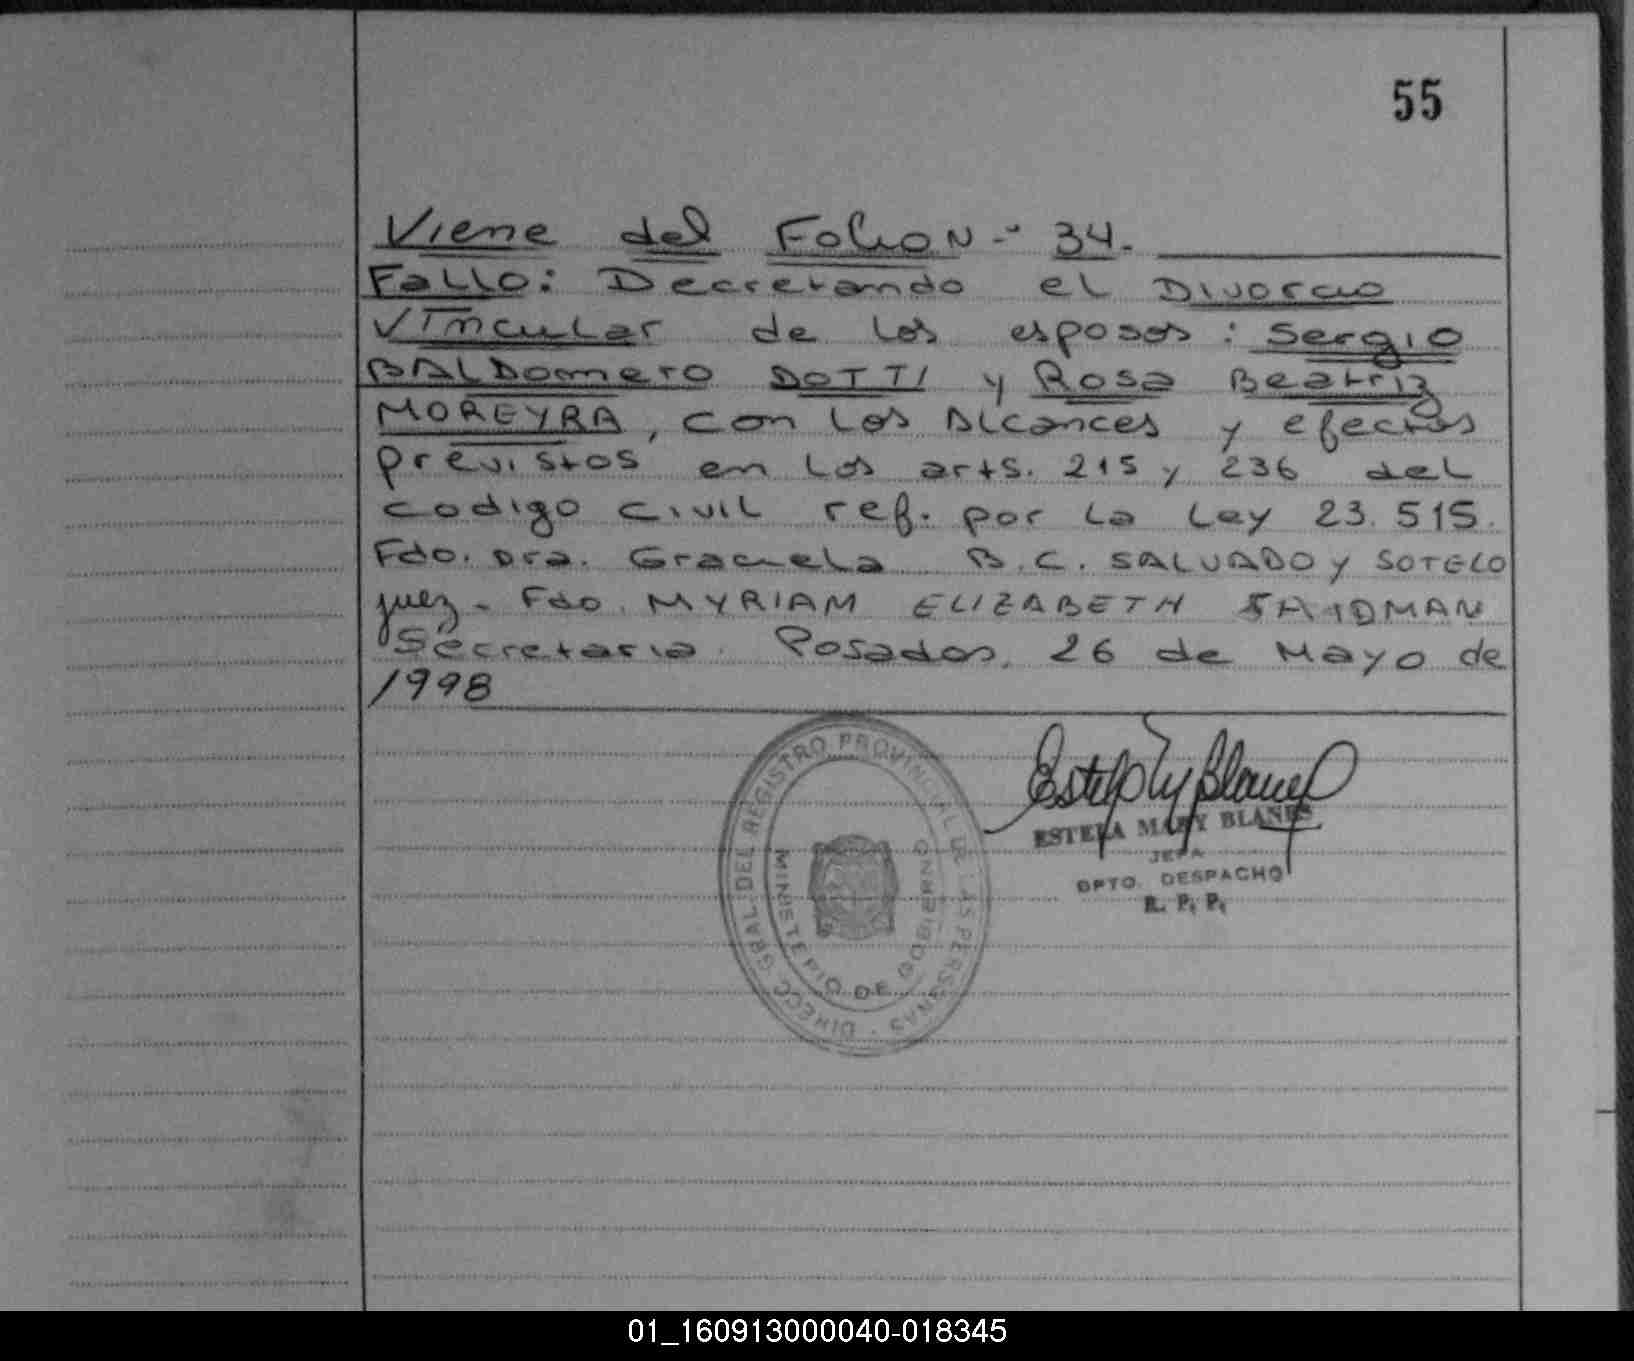 55
Viene del Folio N-º 34.
Fallo: Decretando el Divorcio
Vincular de los esposos: Sergio
BALDomero DOTTI y Rosa Beatriz
MOREYRA, con los Alcances y efectos
previstos en los arts. 215 y 236 del
codigo civil ref. por la Ley 23.515.
Fdo. Dra. Graciela B.C. SALVADO y SOTELO
juez. Fdo. MYRIAM ELIZABETH SAIDMAN
Secretaria. Posadas, 26 de Mayo de
1998
DIRECC. GRAL. DEL REGISTRO PROVINCIAL DE LAS PERSONAS
MINISTERIO DE GOBIERNO
ESTELA MARY BLANES
JEFA
DPTO. DESPACHO
R. P. P.
01_160913000040-018345